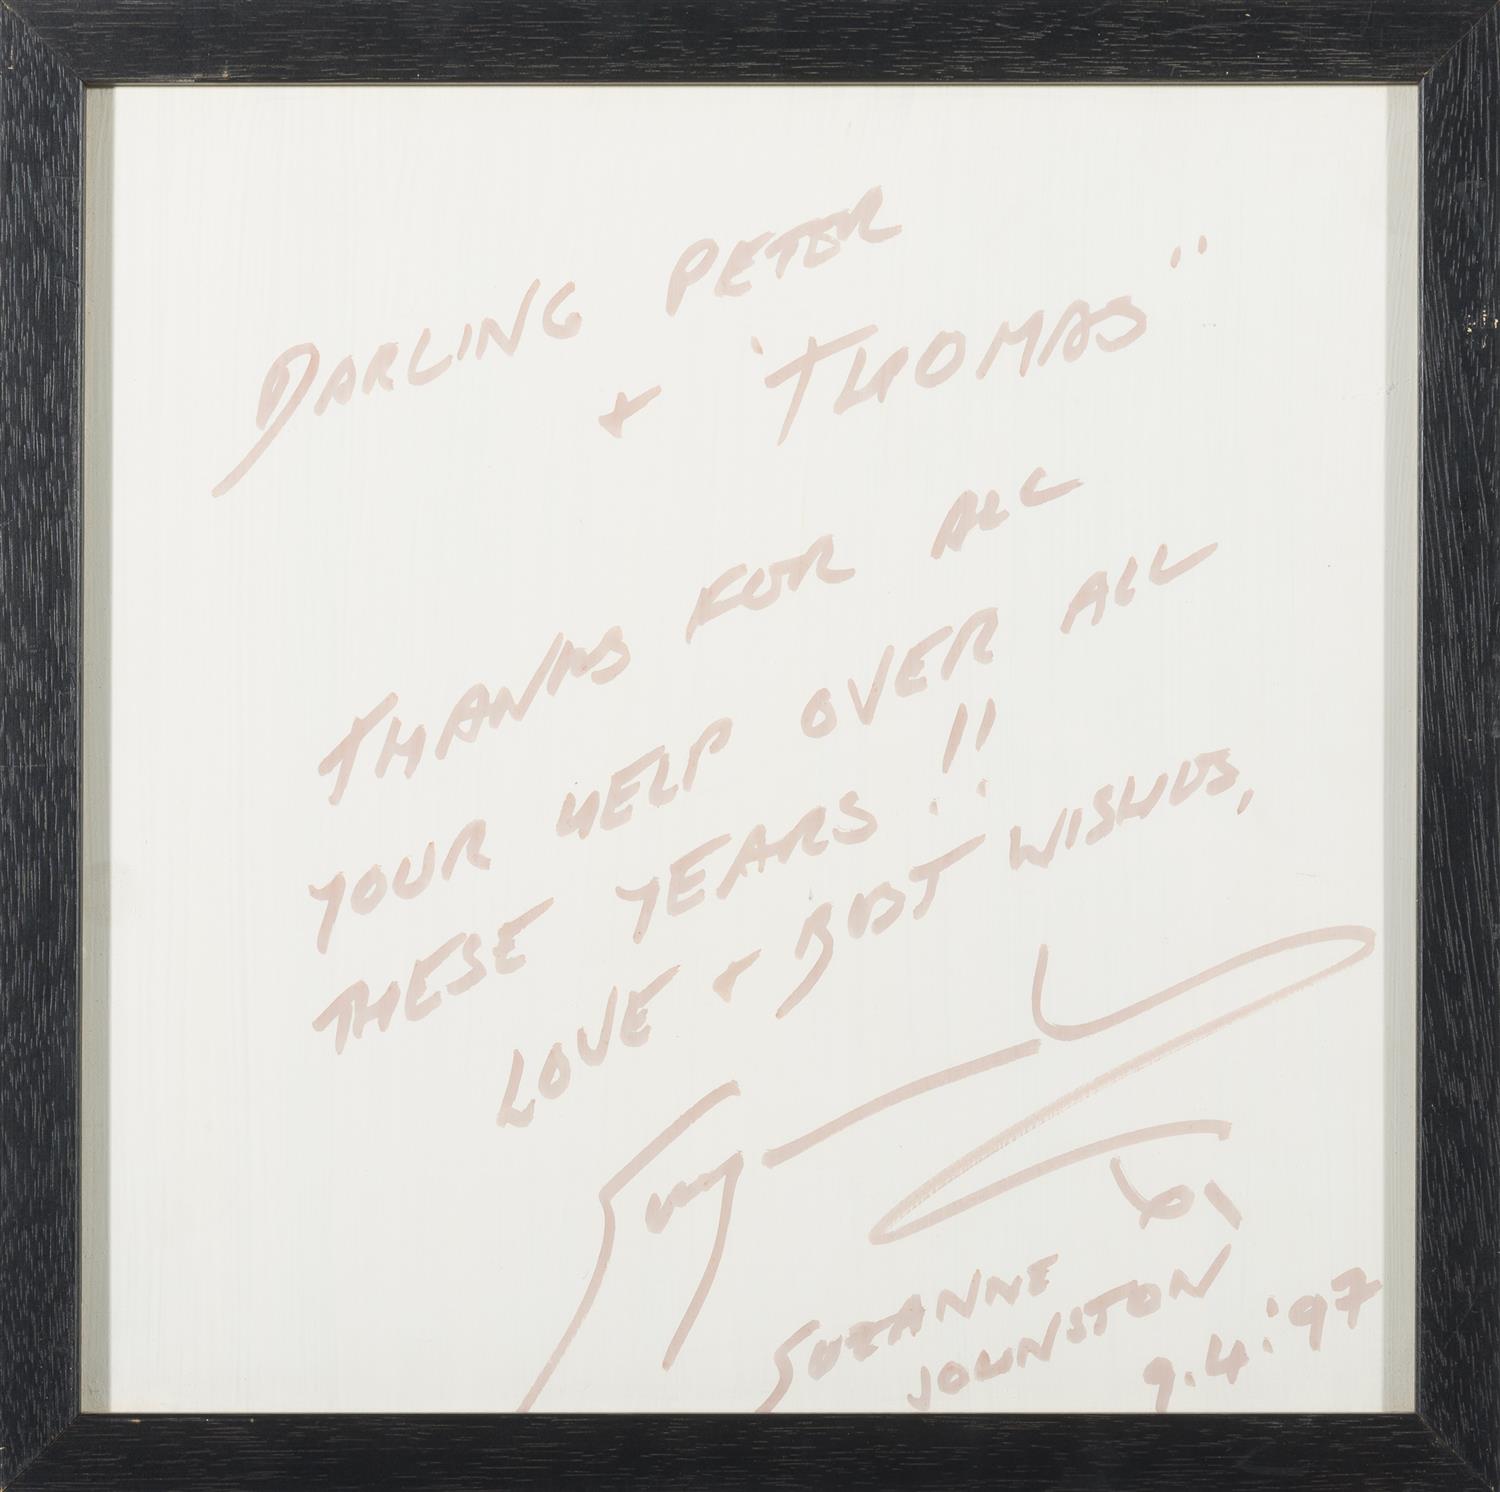 DARLING PETER
+ "THOMAS"
THANKS FOR ALL
YOUR HELP OVER ALL
THESE YEARS!!
LOVE + BEST WISHES,
SUZANNE
JOHNSTON
9.4.'97